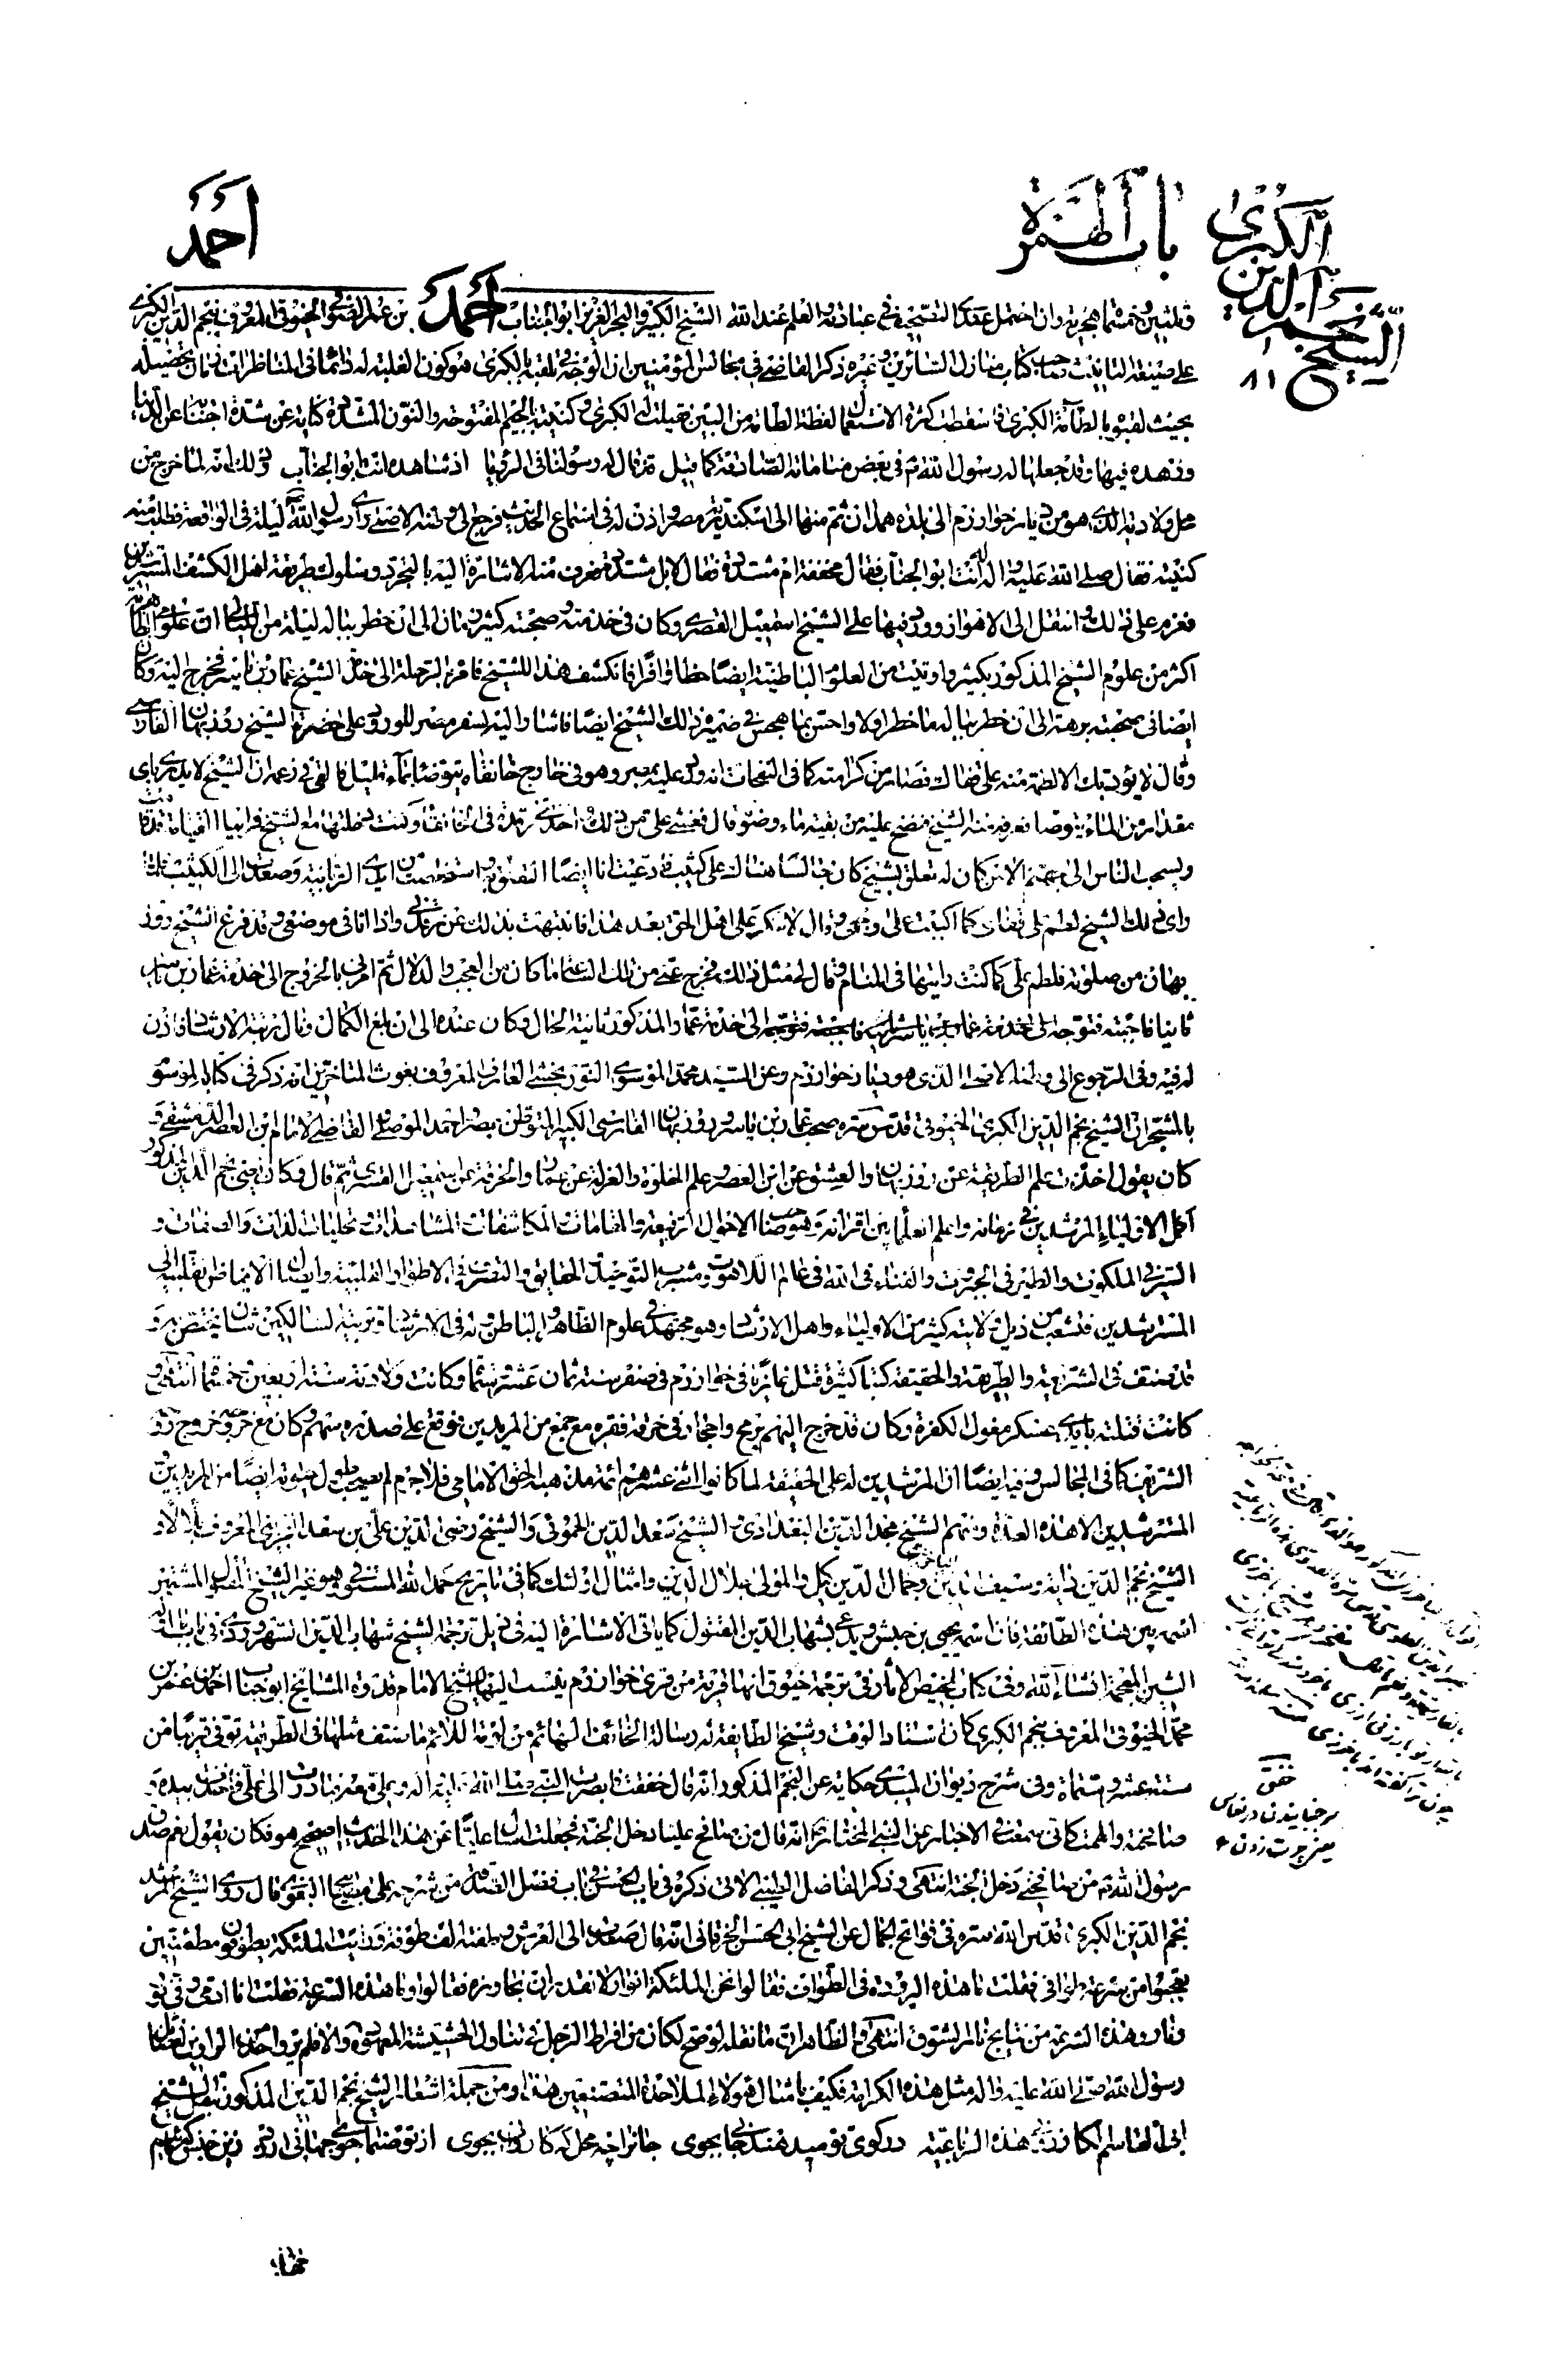 باب الهمزة
احمد
الشيخ نجم الدين الكبرى
٨١
وثلثين وخمسمائة هجرية وان احتمل عندك التصحيف في عبائره والعلم عند الله الشيخ الكبير والبحر الغزير ابو الجناب احمد بن عمر الصوفي الخيوقي المعروف بنجم الدين الكبرى
على صيغة التانيث صاحب كتاب منازل السائرين وغيره ذكر القاضي في مجالس المؤمنين ان الوجه في تلقبه بالكبرى هو كون الغلبة له دائما في المناظرات زمان تحصيله
بحيث لقبوه بالطامة الكبرى فاسقطت كثرة الاستعمال لفظة الطامة من البين فقيلت له الكبرى وكنيته بالجيم المفتوحة والنون المشددة كناية عن شدة اجتنابه عن الدنيا
وزهده فيها وقد جعلها له رسول الله ص في بعض مناماته الصادقة كما قيل قد قال له رسولنا في الرؤيا اذ شاهده انت ابو الجناب وذلك انه لما خرج من
محل ولادته الذي هو من ديار خوارزم الى بلدة همدان ثم منها الى اسكندرية مصر واذن له في استماع الحديث فرجع الى وطنه الاصلي راى رسول الله ص ليلة في الواقعة فطلب منه
كنيته فقال صلى الله عليه واله له انت ابو الجناب فقال مخففة ام مشددة فقال لا بل مشددة فعرف منه الاشارة اليه بالتجرد وسلوك طريقة اهل الكشف
فعزم على ذلك وانتقل الى الاهواز وورد فيها على الشيخ اسمعيل القصري وكان في خدمته وصحبته كثير زمان الى ان خطر بباله ليلة من الليالي ان علومي الظاهرية
اكثر من علوم الشيخ المذكور بكثير واوتيت من العلوم الباطنية ايضا حظا وافرا فانكشف هذا للشيخ فامره بالرحلة الى خدمة الشيخ عمار بن ياسر فخرج اليه وكان
ايضا في صحبته برهة الى ان خطر بباله ما خطر اولا واحس بما هجس في ضميره ذلك الشيخ ايضا فاشار اليه بسفر مصر للورود على حضرة الشيخ روزبهان الفارسي
وقال لا يؤدبك الا لطمة منه على قفاك فصار من كرامته كما في النفحات انه ورد عليه بمصر وهو في خارج خانقاه يتوضا بماء قليل فالقى في زعمه ان الشيخ لا يدري باي
مقدار من الماء يتوضا فعرفه منه الشيخ فنضح عليه من بقية ماء وضوئه قال فغشي علي من ذلك
ويسحب الناس الى جهنم الا من كان له تعلق بشيخ كان جالسا هناك على كثيب فادعيت انا ايضا التعلق به
واى ذلك الشيخ لطم على قفاي كما اكببت على وجهي وقال لا تنكر على اهل الحق بعد هذا فانتبهت بذلك عن رقدتي واذا انا في موضعي وقد فرغ الشيخ روز
بهان من صلوته فلطم علي كما كنت رايتها في المنام وقال لي مثل ذلك فخرج عني من تلك الساعة ما كان من العجب والدلال ثم امرني بالخروج الى خدمة عمار بن ياسر
ثانيا فاجبته فتوجه الى خدمة عمار المذكور ثانية الحال وكان عنده الى ان بلغ الكمال ونال رتبة الارشاد فاذن
له فيه وفي الرجوع الى وطنه الاصلي الذي هو ديار خوارزم وعن السيد محمد الموسوي النوربخشي العارف المعروف بغوث المتاخرين انه ذكر في كتابه الموسوم
بالمشجر ان الشيخ نجم الدين الكبرى الخيوقي قدس سره صحب عمار بن ياسر وروزبهان الفارسي الكبير المتوطن بمصر واحمد الموصلي والقاضي الامام ابن العصر الدمشقي و
كان يقول اخذت علم الطريقة عن روزبهان والعشق عن ابن العصر وعلم الخلوة والعزلة عن عمار والخرقة عن اسمعيل القصري ثم قال وكان يعني نجم الدين المذكور
اكمل الاولياء المرشدين في زمانه واعلم العلماء بين اقرانه وهو صاحب الاحوال الرفيعة والمقامات والمكاشفات والمشاهدات وتجليات الذات والصفات و
السير في الملكوت والطير في الجبروت والفناء في الله في عالم اللاهوت ومشرب التوحيد والحقايق والتصرف في الاطوار القلبية وايصال الانفاض القلبية الى
المسترشدين فتشعب من ذيل ولايته كثير من الاولياء واهل الارشاد وهو مجتهد في علوم الظاهر والباطن وله في الارشاد وتربية السالكين شان يختص به و
قد صنف في الشريعة والطريقة والحقيقة كتبا كثيرة قتل غازيا في خوارزم في صفر سنة ثمان عشرة وستمائة وكانت ولادته سنة اربعين وخمسمائة انتهى و
كانت قتلته بايدي عسكر مغول الكفرة وكان قد خرج اليهم برمح واحجار في خرقة فقره مع جمع من المريدين فوقع على صدره سهم وكان مع خروجه خروج روحه
الشريف كما في المجالس وفيه ايضا ان المرشدين له على الحقيقة لما كانوا اثنى عشر هم ائمة مذهبه الحق الامامي فلا جرم لم يصحب طول حيوته ايضا من المريدين
المسترشدين الا هذه العدة ومنهم الشيخ مجد الدين البغدادي والشيخ سعد الدين الحموي والشيخ رضي الدين علي بن سعد الغزنوي المعروف بلالا و
الشيخ نجم الدين داية وسيف الدين الباخرزي وجمال الدين كيل والمولى جلال الدين وامثال اولئك كما في تاريخ حمد الله المستوفي وهو غير الشيخ المقتول المشتهر
اسمه بين هذه الطائفة فان اسمه يحيى بن حبش ويدعى بشهاب الدين المقتول كما ياتي الاشارة اليه في ذيل ترجمة الشيخ شهاب الدين السهروردي في باب
الشين المعجمة انشاء الله وفي كتاب تلخيص الاثار في ترجمة خيوق انها قرية من قرى خوارزم ينسب اليها الشيخ الامام قدوة المشايخ ابو الجناب احمد بن عمر بن
محمد الخيوقي المعروف بنجم الكبرى كان استاد الوقت وشيخ الطايفة له رسالة الخائف الهائم من لومة اللائم ما صنف مثلها في الطريقة توفي قريبا من
سنة عشر وستمائة وفي شرح ديوان المبيدي حكاية عن النجم المذكور انه قال خففت فابصرت النبي صلى الله عليه واله وعلي معه فبادرت الى علي فاخذت بيده و
صافحته والهمت كاني سمعت في الاخبار عن النبي المختار انه قال من صافح عليا دخل الجنة فجعلت اسال عليا عن هذا الحديث اصحيح هو فكان يقول نعم صدق
رسول الله ص من صافحني دخل الجنة انتهى وذكر الفاضل الطيبي الاتي ذكره في باب الحسن في باب فضل الفقراء من شرحه على مصابيح البغوي قال روى الشيخ المرشد
نجم الدين الكبرى قدس الله سره في فواتح الجمال عن الشيخ ابي الحسن الخرقاني انه قال صعدت الى العرش وطفته الف طوفة ورايت الملئكة يطوفون مطمئنين
يعجبوا من سرعة طوافي فقلت ما هذه البرودة في الطواف فقالوا نحن الملئكة انوار لا نقدر ان نجاوزه فقالوا وما هذه السرعة فقلت انا ادمي وفي نور
ونار وهذه السرعة من نتايج نار الشوق انتهى والظاهر ان ما نقله لو صح لكان من افراط الرجل في تناول الحشيشة المعهودة والا فلم يرو احد من الراوين لفضائل
رسول الله صلى الله عليه واله مثل هذه الكرامة فكيف بامثال هؤلاء الملاحدة المتصنعين هذا ومن جملة اشعار الشيخ نجم الدين المذكور بنقل الشيخ
ابي القاسم الكازروني هذه الرباعية
خفق
سر جنبانيدن در نعاس